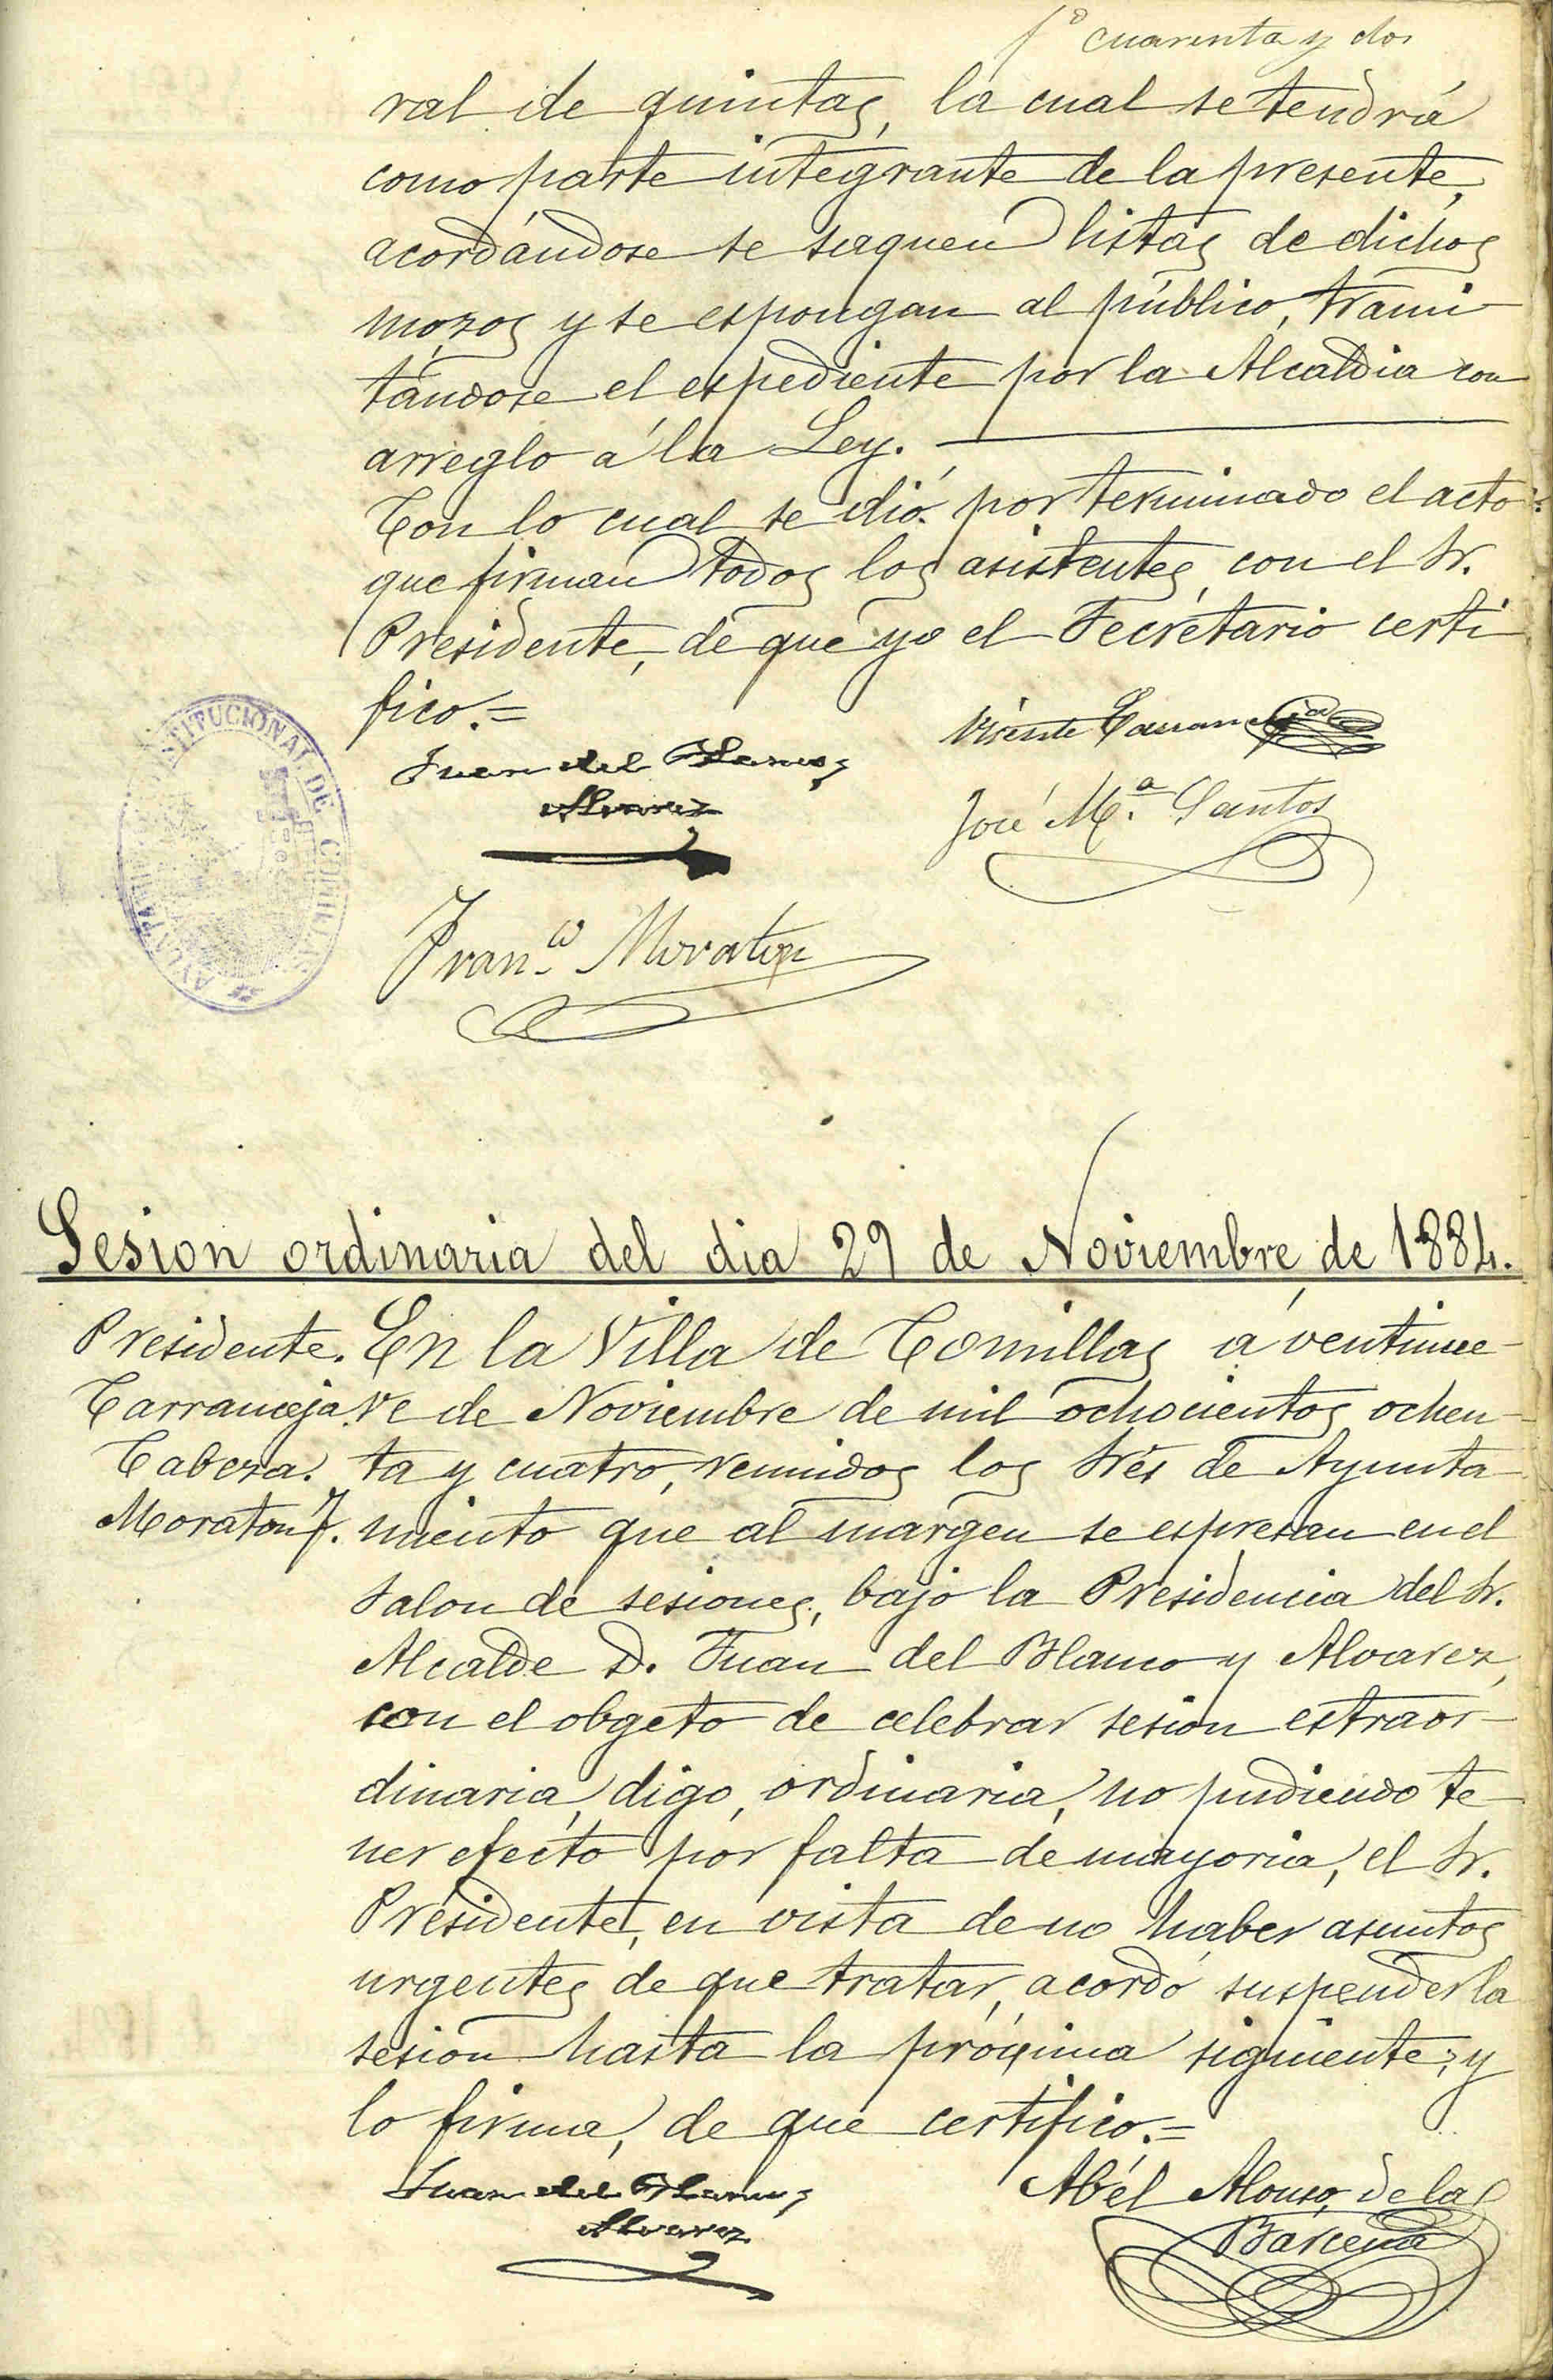 fº cuarenta y dos
ral de quintas, la cual se tendrá
como parte integrante de la presente,
acordándose se saquen listas de dichos
mozos y se espongan al público, trami-
tándose el espediente por la Alcaldia con
arreglo á la Ley.
Con lo cual se dió por terminado el acto
que firman todos los asistentes, con el Sr.
Presidente, de que yo el Secretario certi
fico.=
Juan del Blanco y
Alvarez
Vicente
José Mª. Santos
Franco Moraton
AYUNTAMIENTO CONSTITUCIONAL DE COMILLAS
Sesion ordinaria del dia 29 de Noviembre de 1884.
Presidente. En la Villa de Comillas á ventinue-
Carranceja. ve de Noviembre de mil ochocientos ochen-
Cabeza. ta y cuatro, reunidos los Sres de Ayunta-
Moraton F. miento que al margen se espresan en el
Salon de sesiones, bajo la Presidencia del Sr.
Alcalde D. Juan del Blanco y Alvarez,
con el obgeto de celebrar sesion estraor-
dinaria, digo, ordinaria, no pudiendo te-
ner efecto por falta de mayoria, el Sr.
Presidente, en vista de no haber asuntos
urgentes de que tratar, acordó suspender la
sesion hasta la próxima siguiente; y
lo firma, de que certifico.=
Juan del Blanco y
Alvarez
Abél Alonso de la
Barcena